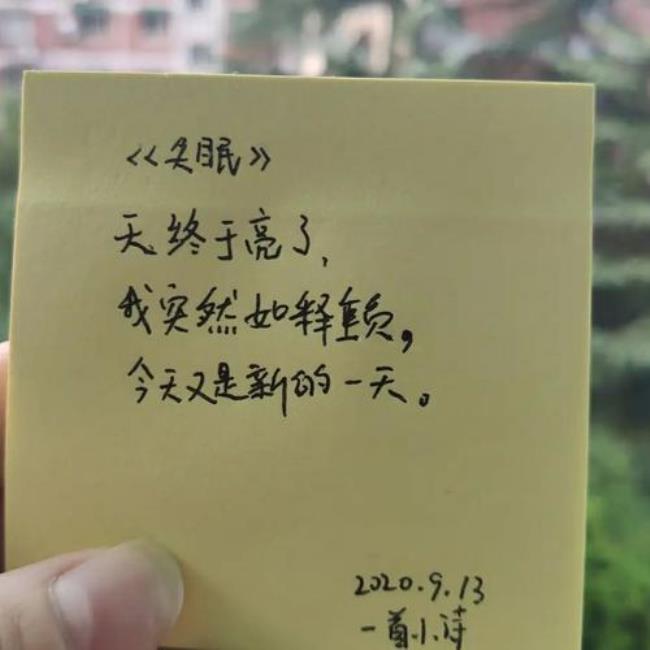 《失眠》
天终于亮了,
我突然如释重负,
今天又是新的一天。
2020.9.13
一首小诗